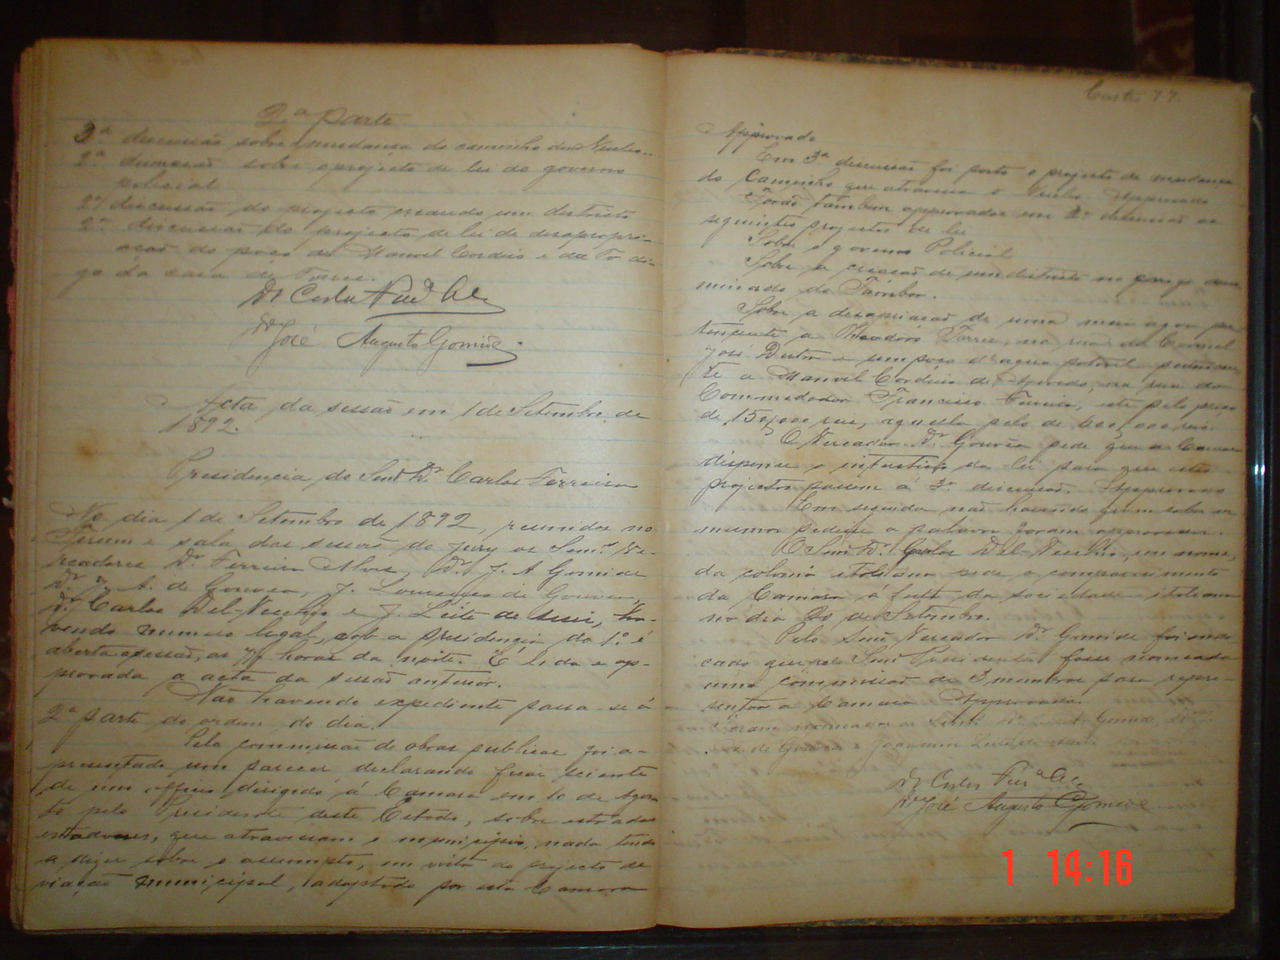 2.ª parte
3ª discussão sobre mudança do caminho do
2ª discussão sobre o projecto de lei do governo
policial
2ª discussão do projecto creando um districto
2ª discussão do projecto de lei de desapropri-
ação do poço de Manoel Cordeiro e da
go da casa de Torres.
Dr Carlos Ferrª Al
Dr José Augusto Gomide
Acta da sessão em 1 de Setembro de
1892.
Presidencia do Snr. Dr. Carlos Ferreira
No dia 1 de Setembro de 1892, reunidos no
Forum e sala das sessões do jury os Senrs. Ve-
readores Dr. Ferreira Alves, Dr. J. A. Gomide
Dr. A. de Gouvea, J. Lourenço de Gouvea,
Dr. Carlos Del Vecchio e J. Leite de Ha-
vendo numero legal, sob a presidencia do 1º é
aberta a sessão, as 7 horas da noite. É lida e ap-
provada a acta da sessão anterior.
Não havendo expediente passa-se á
2ª parte da ordem do dia.
Pela commissão de obras publicas foi a-
presentado um parecer, declarando ficar sciente
de um officio dirigido á Camara em 10 de Agos-
to pelo Presidente deste Estado, sobre estradas
que atravessam o municipio, nada tendo
a dizer sobre o assumpto, em vista do projecto de
viação municipal, adoptado por esta Camara
77
Approvado
Em 3ª discussão foi posto o projecto de mudança
do Caminho que atravessa o Approvado
Forão tambem approvados em 2ª discussão os
seguintes projectos de lei
Sobre o governo Policial
Sobre a creação de um districto no
minado do Tambor.
Sobre a desapropriação de uma meia agua per-
tencente a Theodoro Torres, na rua do Coronel
José Dutra e um poço d'agua potavel pertencen-
te a Manoel Cordeiro de Azevedo, na rua do
Commendador Francisco Ferreira, este pelo preço
de 150,000 reis, aquella pelo de 600,000 reis.
O Vereador Dr. Gouvêa pede que a Camara
dispense o intersticio da lei para que estes
projectos passem á 3ª discussão. Approvado
Em seguida não havendo quem sobre os
mesmos pedisse a palavra foram approvados.
O Snr. Dr. Carlos Del Vecchio, em nome
da colonia italiana pede o comparecimento
da Camara á festa da sociedade italiana
no dia 20 de Setembro.
Pelo Snr. Vereador Dr. Gomide foi indi-
cado que pelo Snr. Presidente fosse nomeada
uma commissão de 3 membros para repre-
sentar a Camara. Approvada.
Foram nomeados Gomide
de Joaquim Leite de
Dr Carlos Ferrª Al
Dr José Augusto Gomide
1 14:16